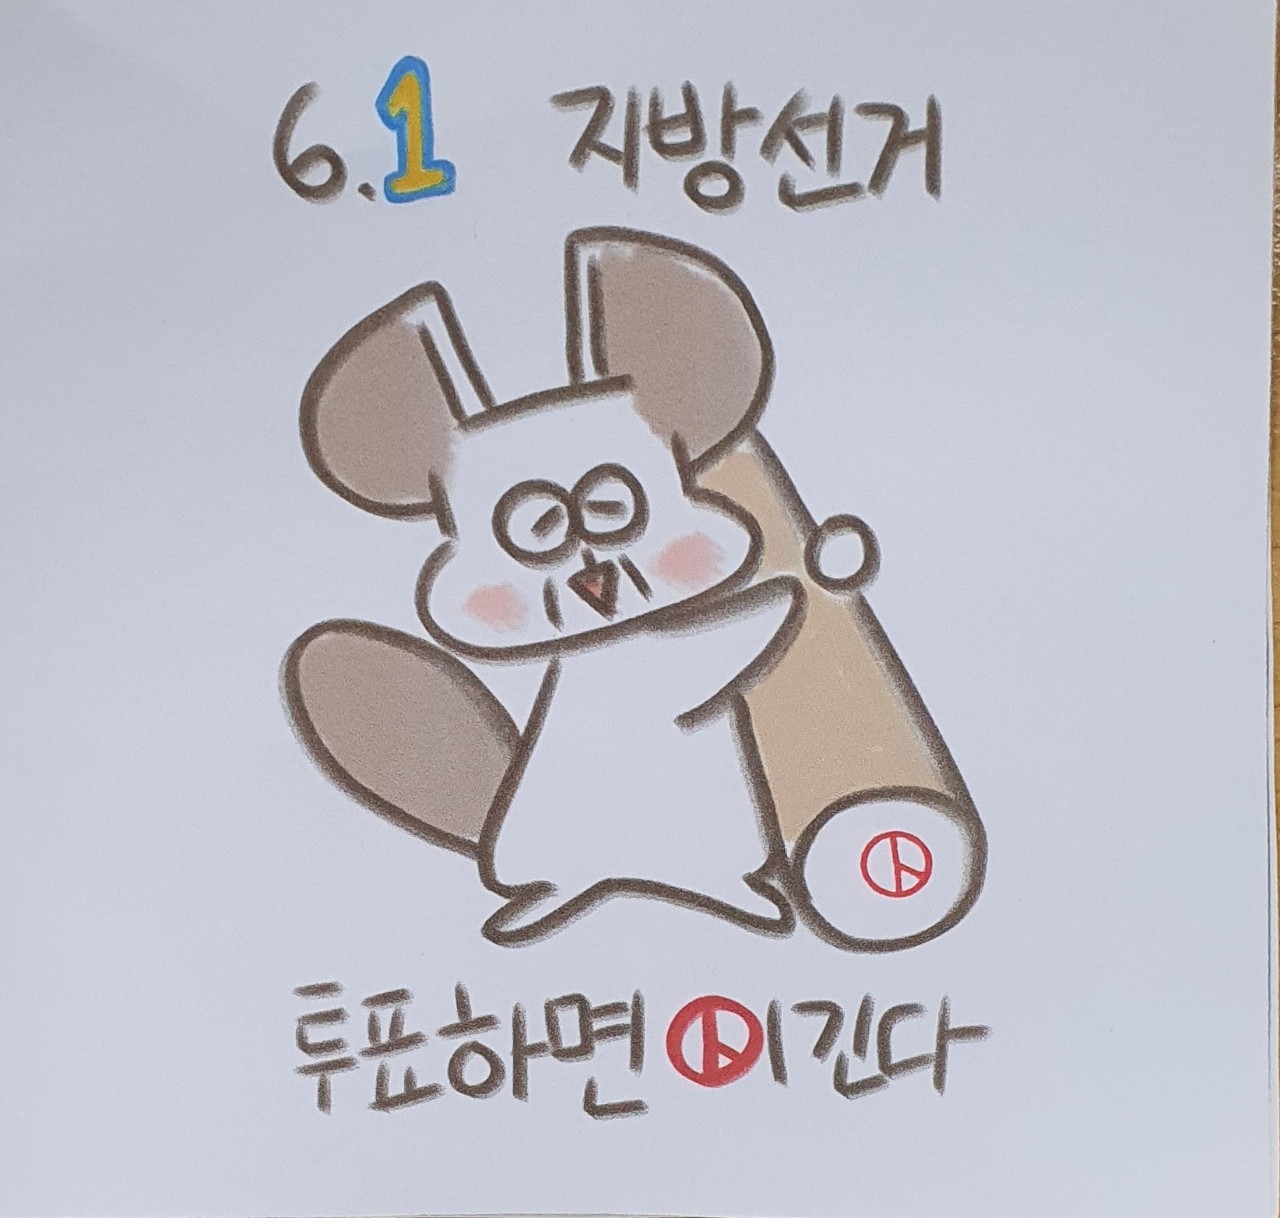 6.1 지방선거
투표하면 이긴다